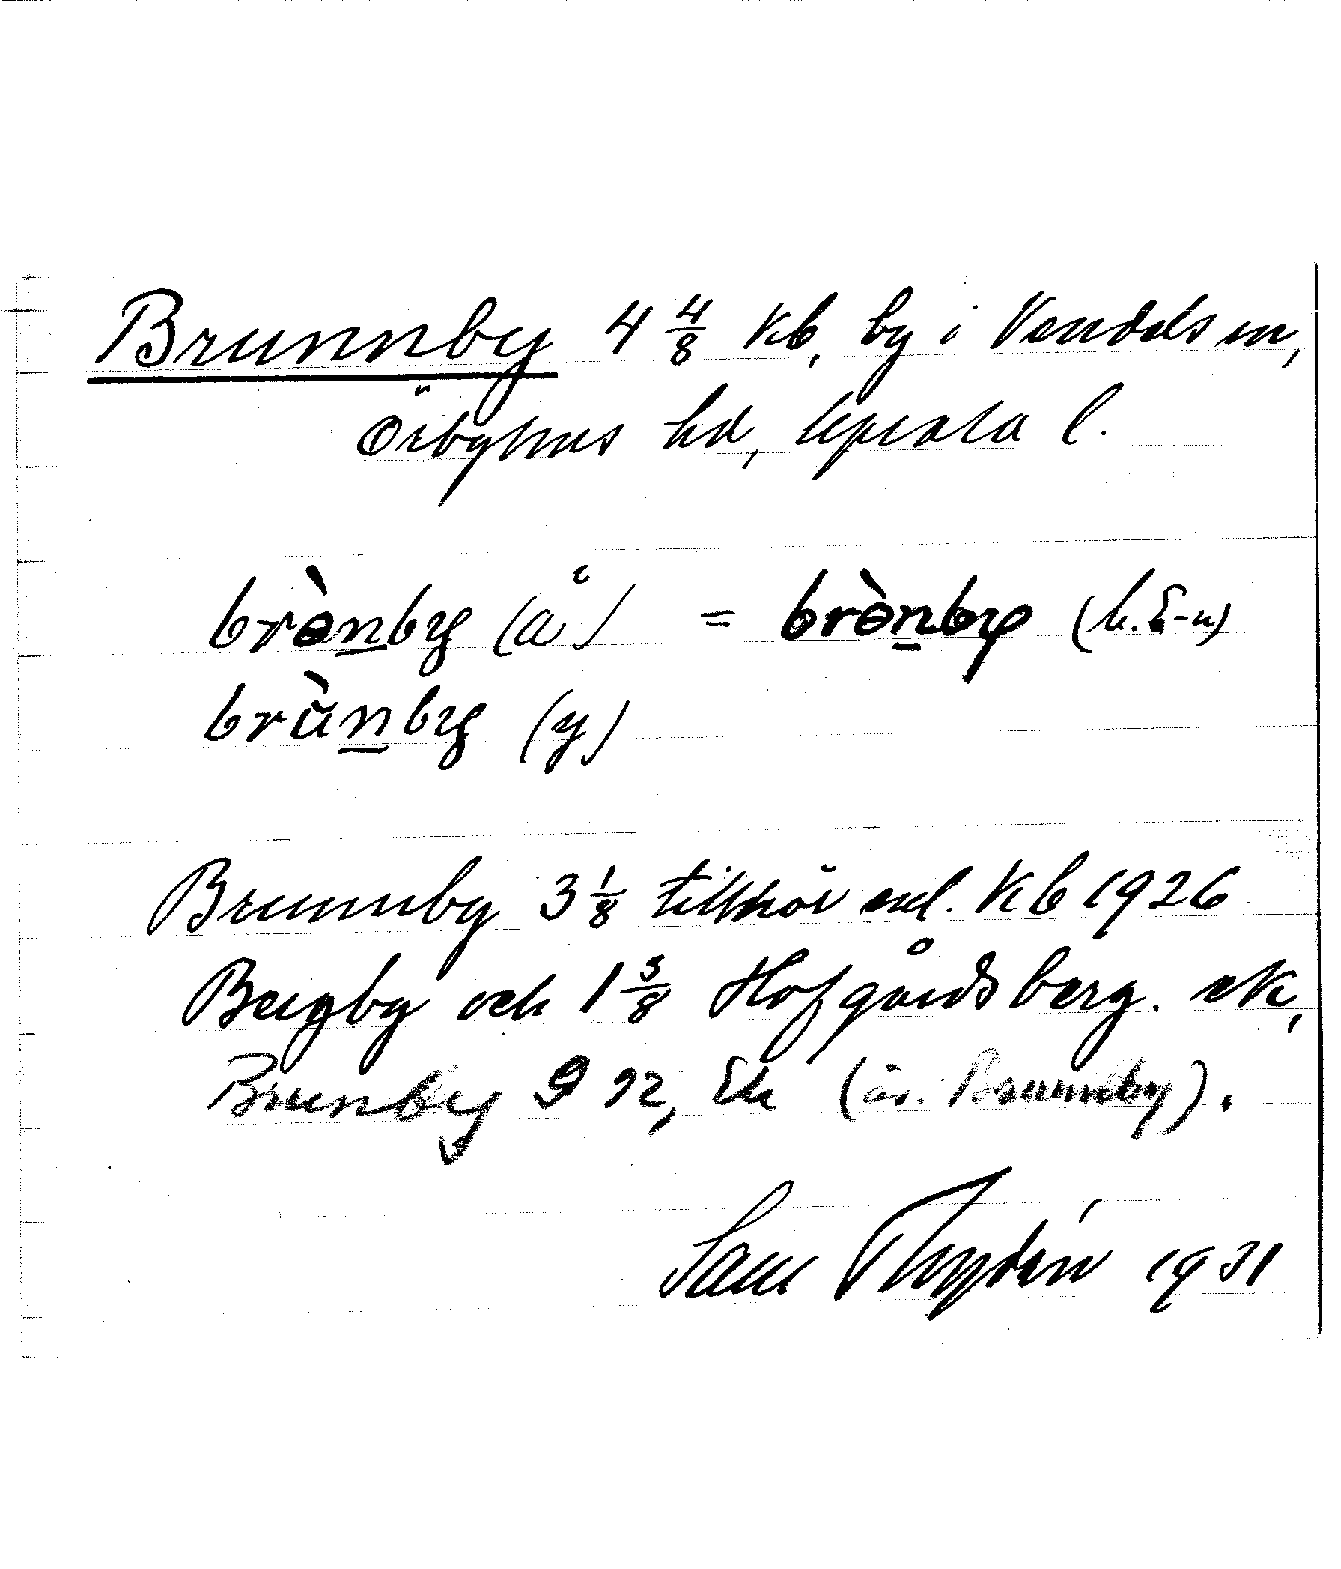 Brunnby 4 4/8 Kb, by i Vendels sn,
Örbyhus hd, Uppsala l.
brò̱nby (å) = brò̱nby (h.
brù̱nby (y)
Brunnby 3 1/8 tillhör enl. Kb 1926
Bergby och 1 3/8 Hofgårdsberg. ek,
Brunnby 9 92, Ek (äv. Brunnby).
Sam Thydén 1931